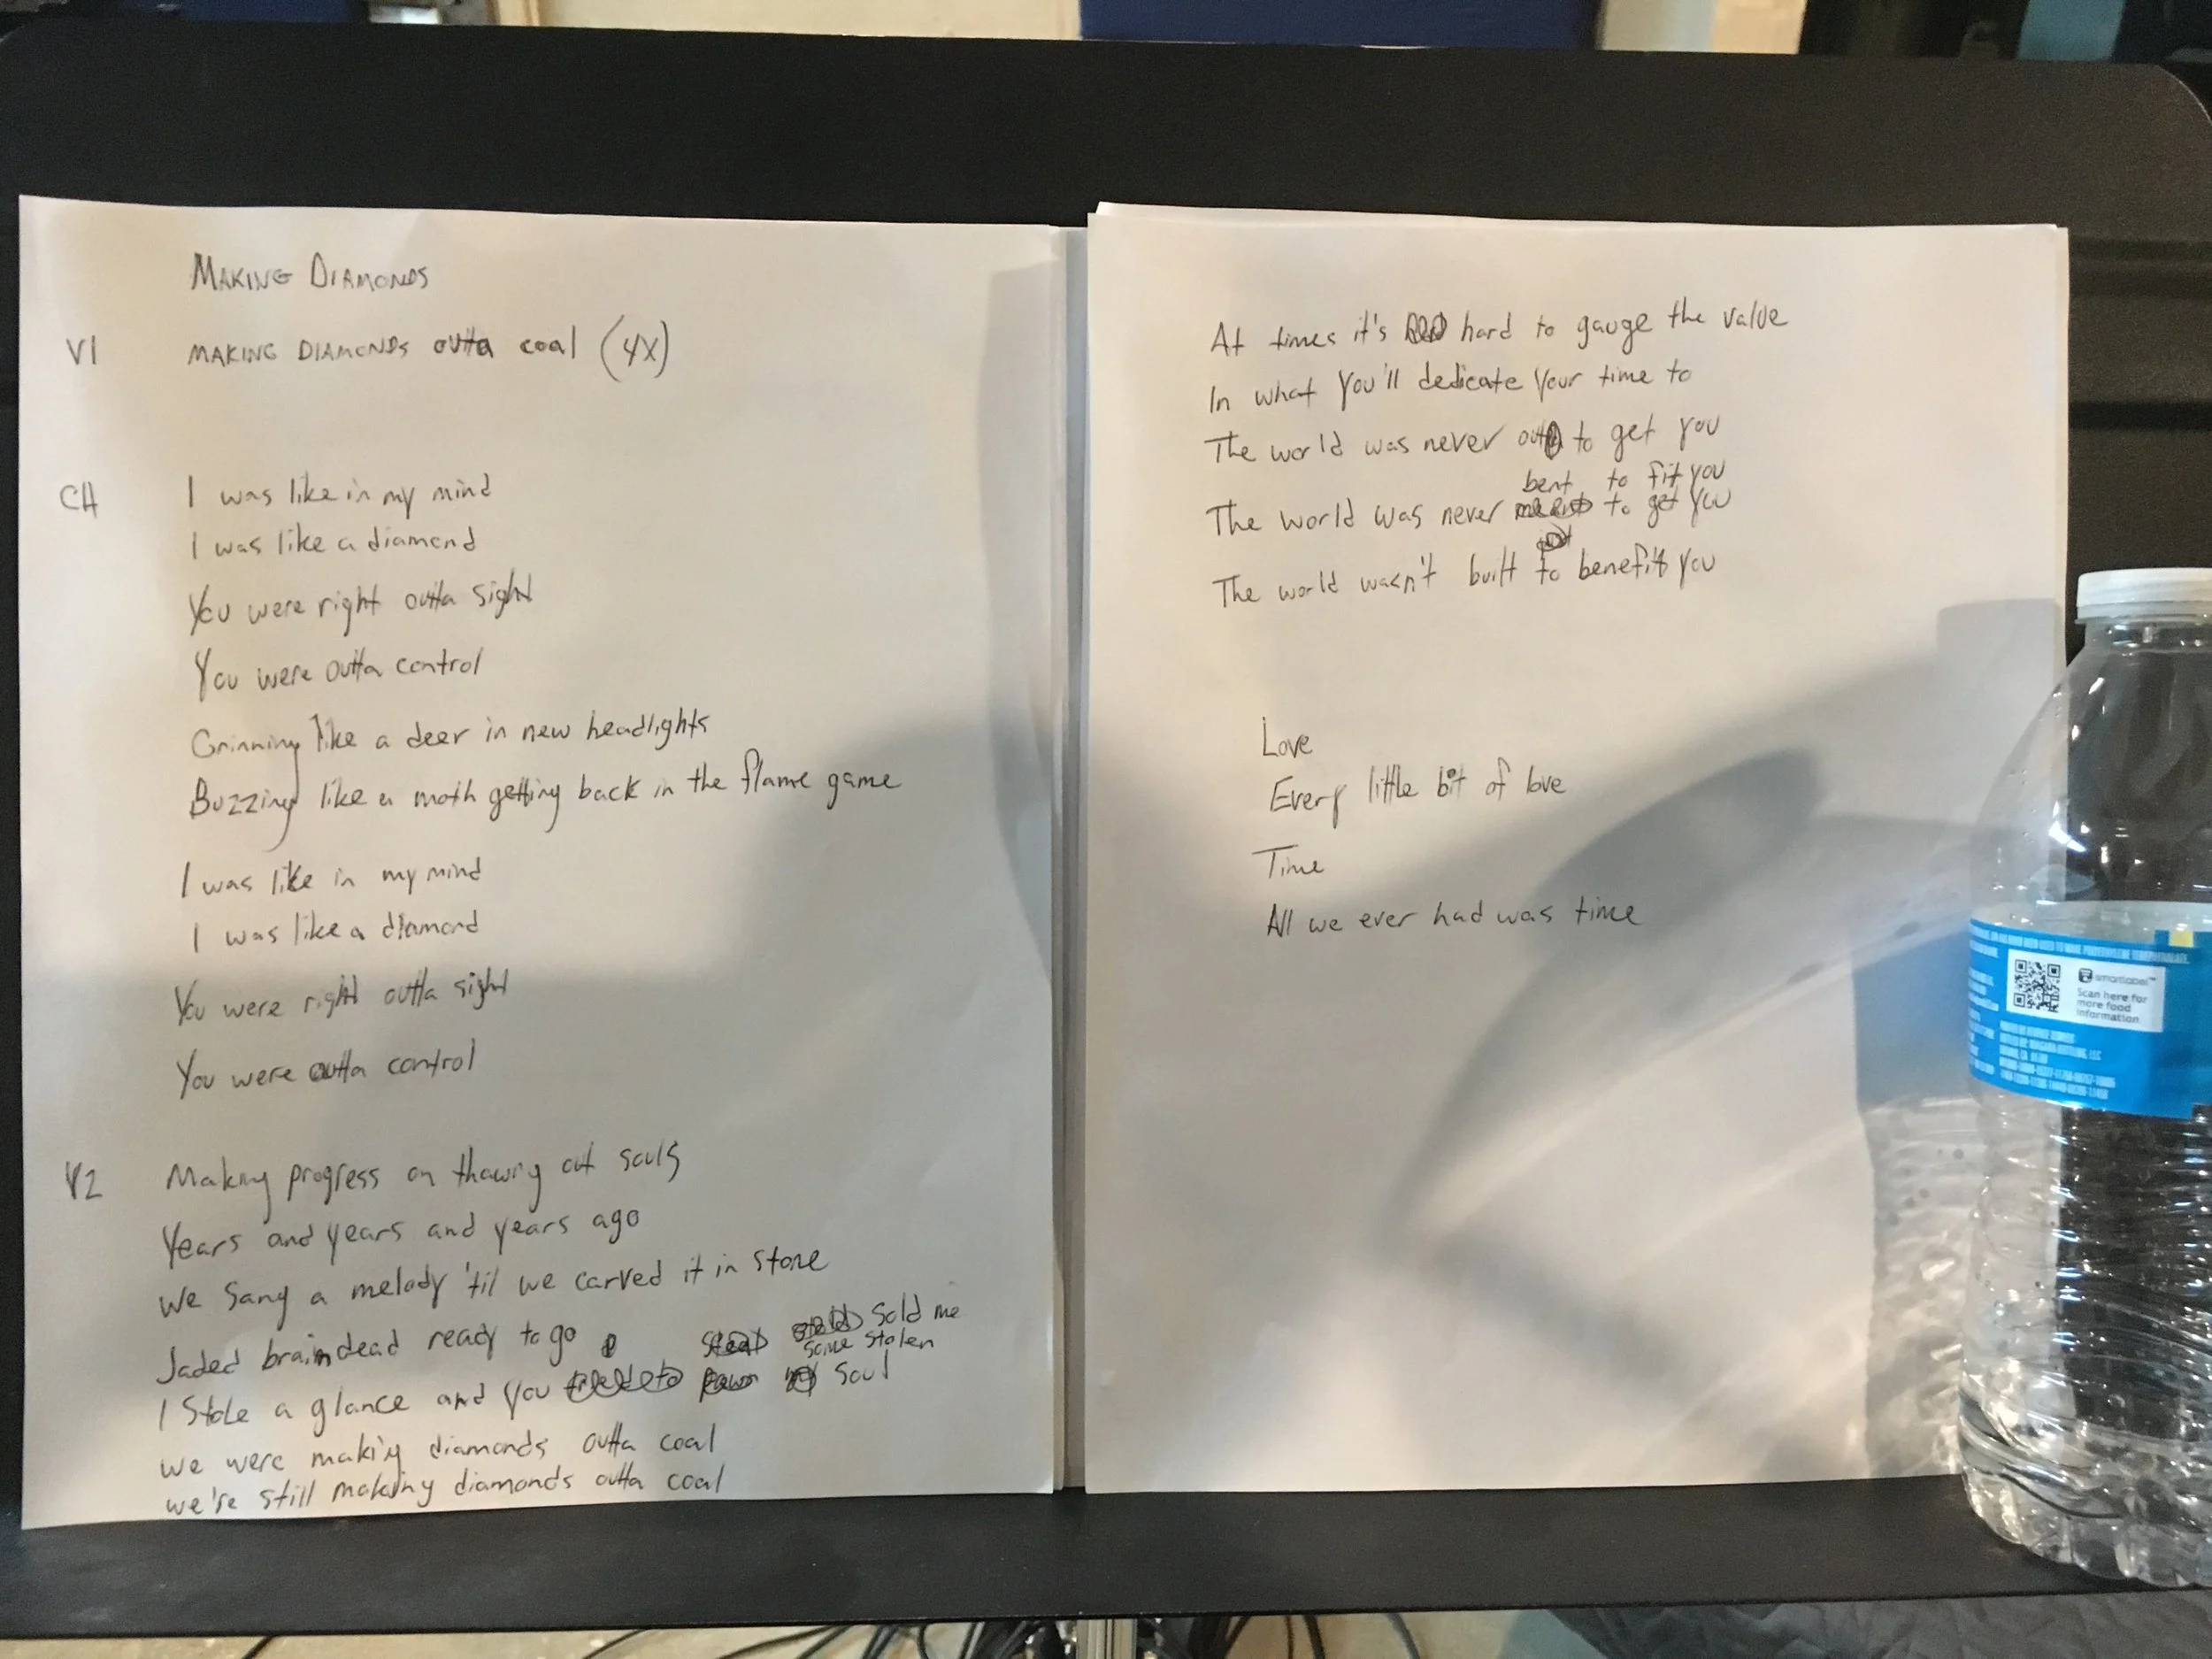 MAKING DIAMONDS
V1 MAKING DIAMONDS outta coal (4X)
CH I was like in my mind
I was like a diamond
You were right outta sight
You were outta control
Grinning like a deer in new headlights
Buzzing like a moth getting back in the flame game
I was like in my mind
I was like a diamond
You were right outta sight
You were outta control
V2 Making progress on thawing out souls
Years and years and years ago
We sang a melody 'til we carved it in stone
Jaded braindead ready to go
sold me
some stolen
I stole a glance and you soul
we were making diamonds outta coal
we're still making diamonds outta coal
At times it's hard to gauge the value
In what you'll dedicate your time to
The world was never out to get you
bent to fit you
The world was never to get you
The world wasn't built to benefit you
Love
Every little bit of love
Time
All we ever had was time
smartlabel™
Scan here for
more food
information